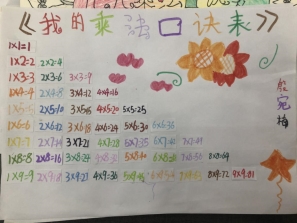 《我的乘法口诀表》
1×1=1
1×2=2 2×2=4
1×3=3 2×3=6 3×3=9
1×4=4 2×4=8 3×4=12 4×4=16
1×5=5 2×5=10 3×5=15 4×5=20 5×5=25
1×6=6 2×6=12 3×6=18 4×6=24 5×6=30 6×6=36
1×7=7 2×7=14 3×7=21 4×7=28 5×7=35 6×7=42 7×7=49
1×8=8 2×8=16 3×8=24 4×8=32 5×8=40 6×8=48 7×8=56 8×8=64
1×9=9 2×9=18 3×9=27 4×9=36 5×9=45 6×9=54 7×9=63 8×9=72 9×9=81
宛梅